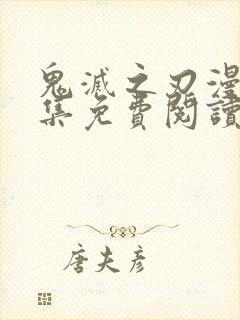 鬼滅之刃漫
集免費閱讀
唐夫彥